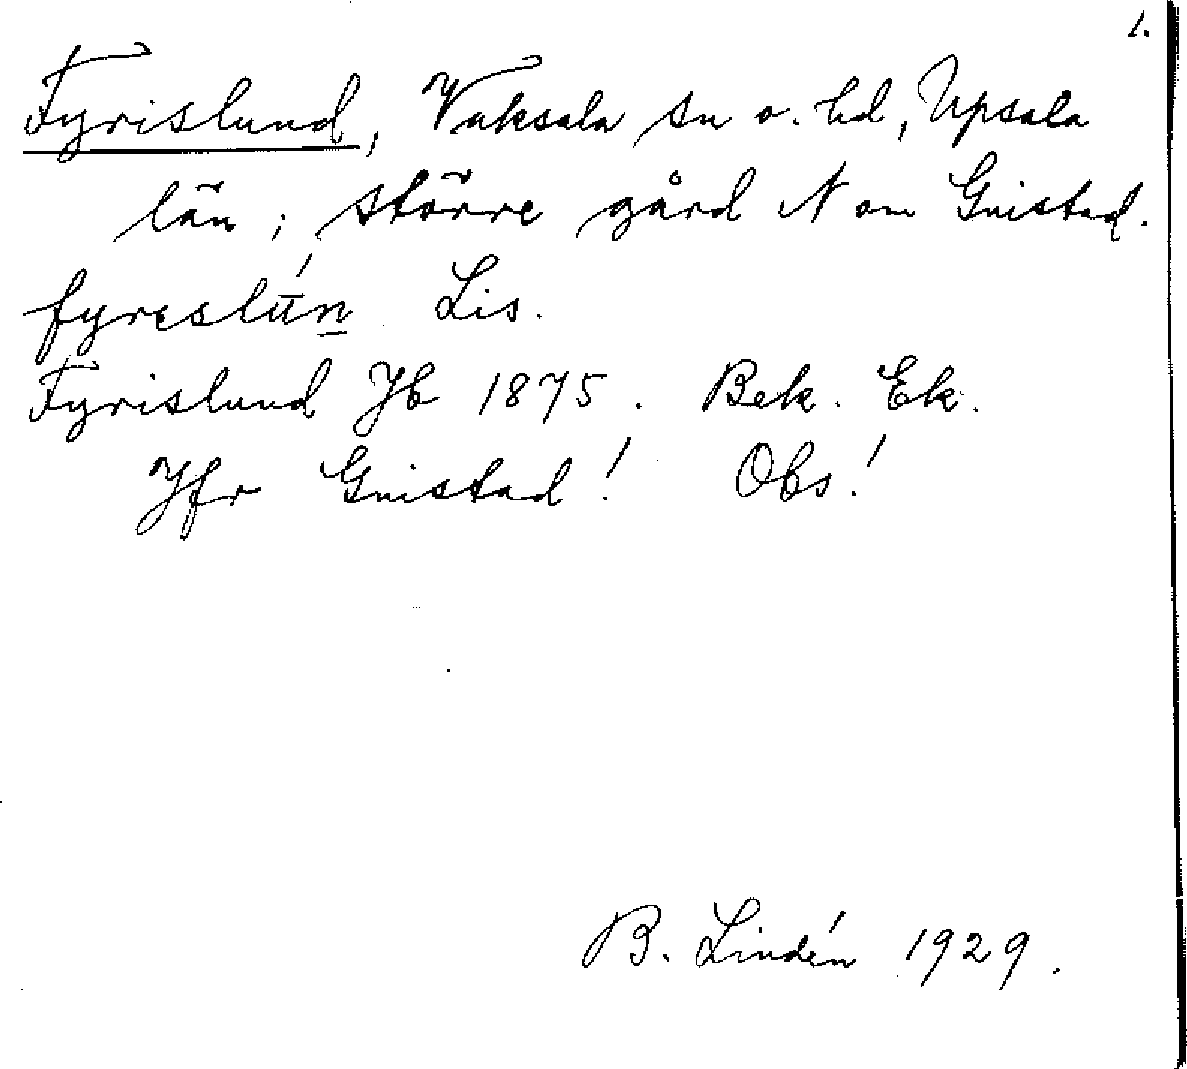 1.
Fyrislund, Vaksala sn o. hd, Upsala
län; större gård N om Gnistad.
fyrəslún Lis.
Fyrislund Jb 1875. Bek. Ek.
Jfr Gnistad! Obs!
B. Lindén 1929.